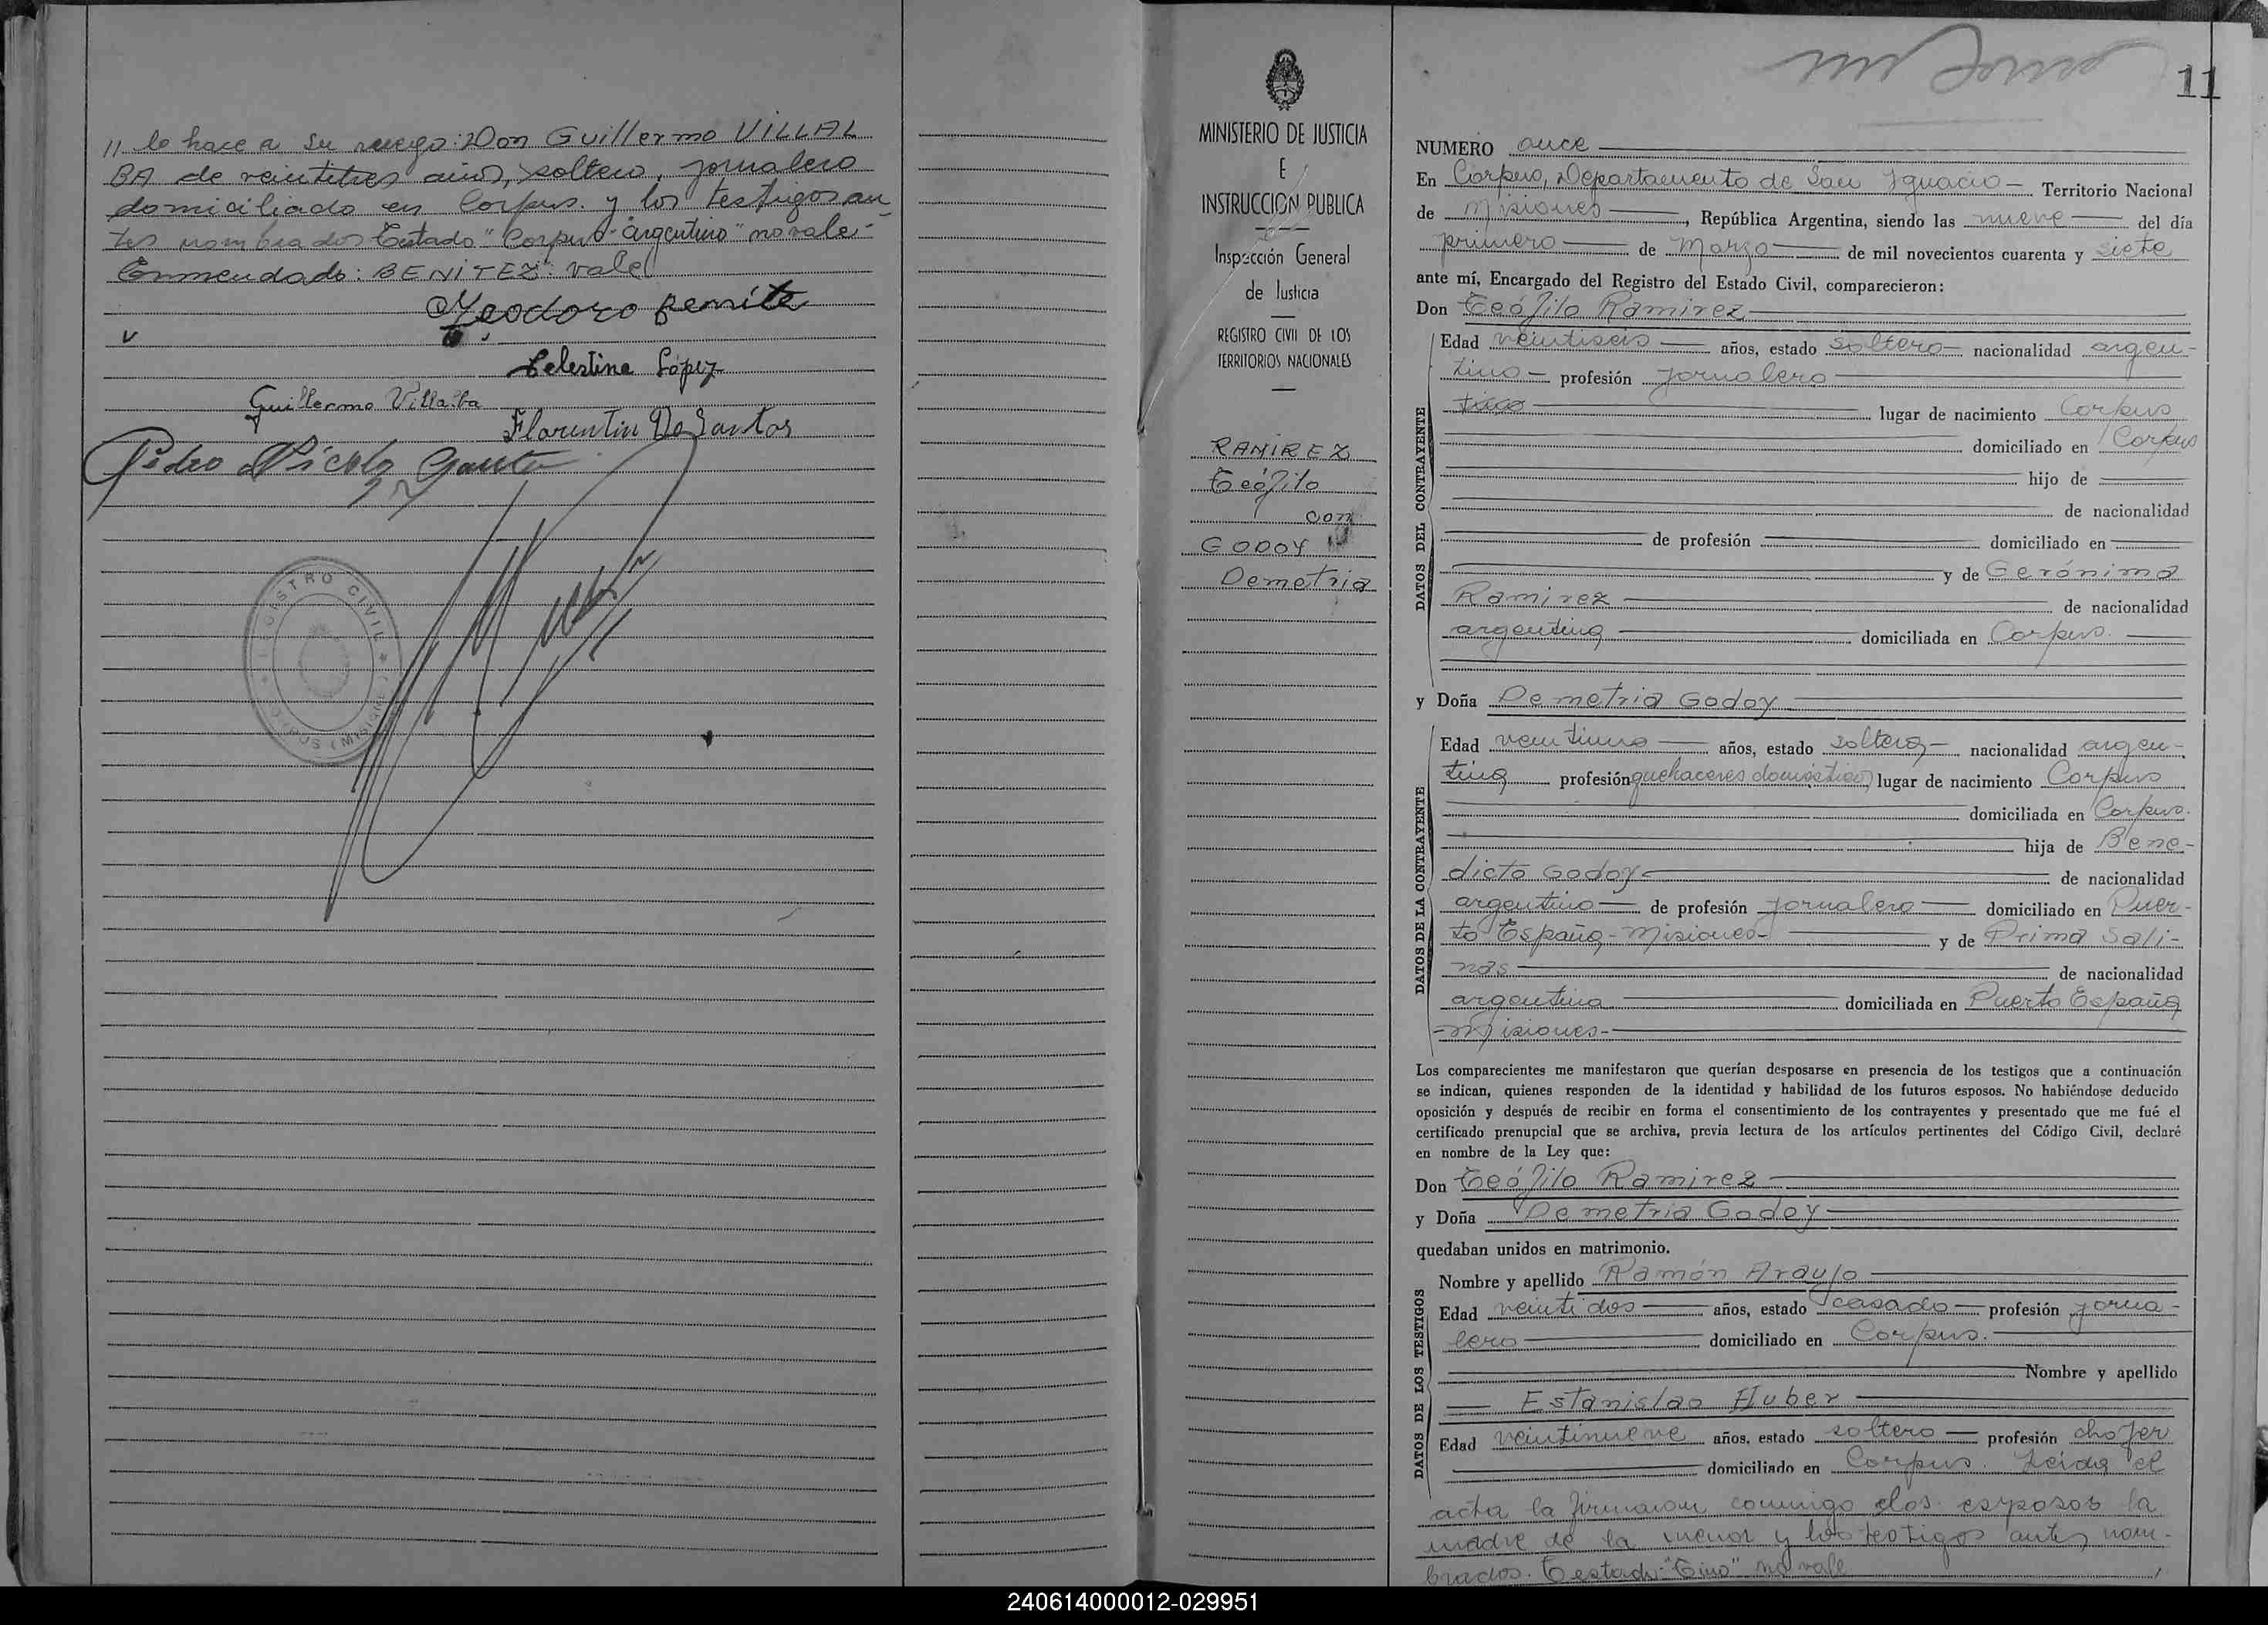 11 lo hace a su ruego: Don Guillermo VILLAL
BA de veintitres años, soltero, jornalero
domiciliado en Corpus. y los testigos an
tes nombrados Testado "Corpus-argentino" no vale-
Enmendado: BENITEZ: vale
Teodoro Benite
v
Celestina López
Guillermo Villalba
Florentin Do Santos
Pedro
REGISTRO CIVIL
MINISTERIO DE JUSTICIA
E
INSTRUCCIÓN PUBLICA
Inspección General
de Justicia
REGISTRO CIVIL DE LOS
TERRITORIOS NACIONALES
RAMIREZ
Teófilo
con
GODOY
Demetria
11
NUMERO once
En Corpus, Departamento de San Ignacio - Territorio Nacional
de Misiones, República Argentina, siendo las nueve del día
primero de Marzo de mil novecientos cuarenta y siete
ante mí, Encargado del Registro del Estado Civil, comparecieron:
Don Teófilo Ramirez
DATOS DEL CONTRAYENTE
Edad veintiseis años, estado soltero nacionalidad argen-
tino - profesión jornalero
lugar de nacimiento Corpus
domiciliado en Corpus
hijo de
de nacionalidad
de profesión domiciliado en
y de Gerónima
Ramirez de nacionalidad
argentina domiciliada en Corpus.
y Doña Demetria Godoy
DATOS DE LA CONTRAYENTE
Edad veintiuno años, estado soltera nacionalidad argen-
tina profesión quehaceres domésticos lugar de nacimiento Corpus
domiciliada en Corpus.
hija de Bene-
dicto Godoy de nacionalidad
argentino de profesión jornalero domiciliado en Puer-
to España - Misiones- y de Prima Sali-
nas de nacionalidad
argentina domiciliada en Puerto España
- Misiones-
Los comparecientes me manifestaron que querían desposarse en presencia de los testigos que a continuación
se indican, quienes responden de la identidad y habilidad de los futuros esposos. No habiéndose deducido
oposición y después de recibir en forma el consentimiento de los contrayentes y presentado que me fué el
certificado prenupcial que se archiva, previa lectura de los artículos pertinentes del Código Civil, declaré
en nombre de la Ley que:
Don Teófilo Ramirez
y Doña Demetria Godoy
quedaban unidos en matrimonio.
DATOS DE LOS TESTIGOS
Nombre y apellido Ramón Araujo
Edad veintidos años, estado casado profesión jorna-
lero domiciliado en Corpus.
Nombre y apellido
Estanislao Huber
Edad veintinueve años, estado soltero profesión chofer
domiciliado en Corpus. Leida el
acta la firmaron conmigo los esposos la
madre de la menor y los testigos antes nom-
brados. Testado: "Tino" no vale
240614000012-029951